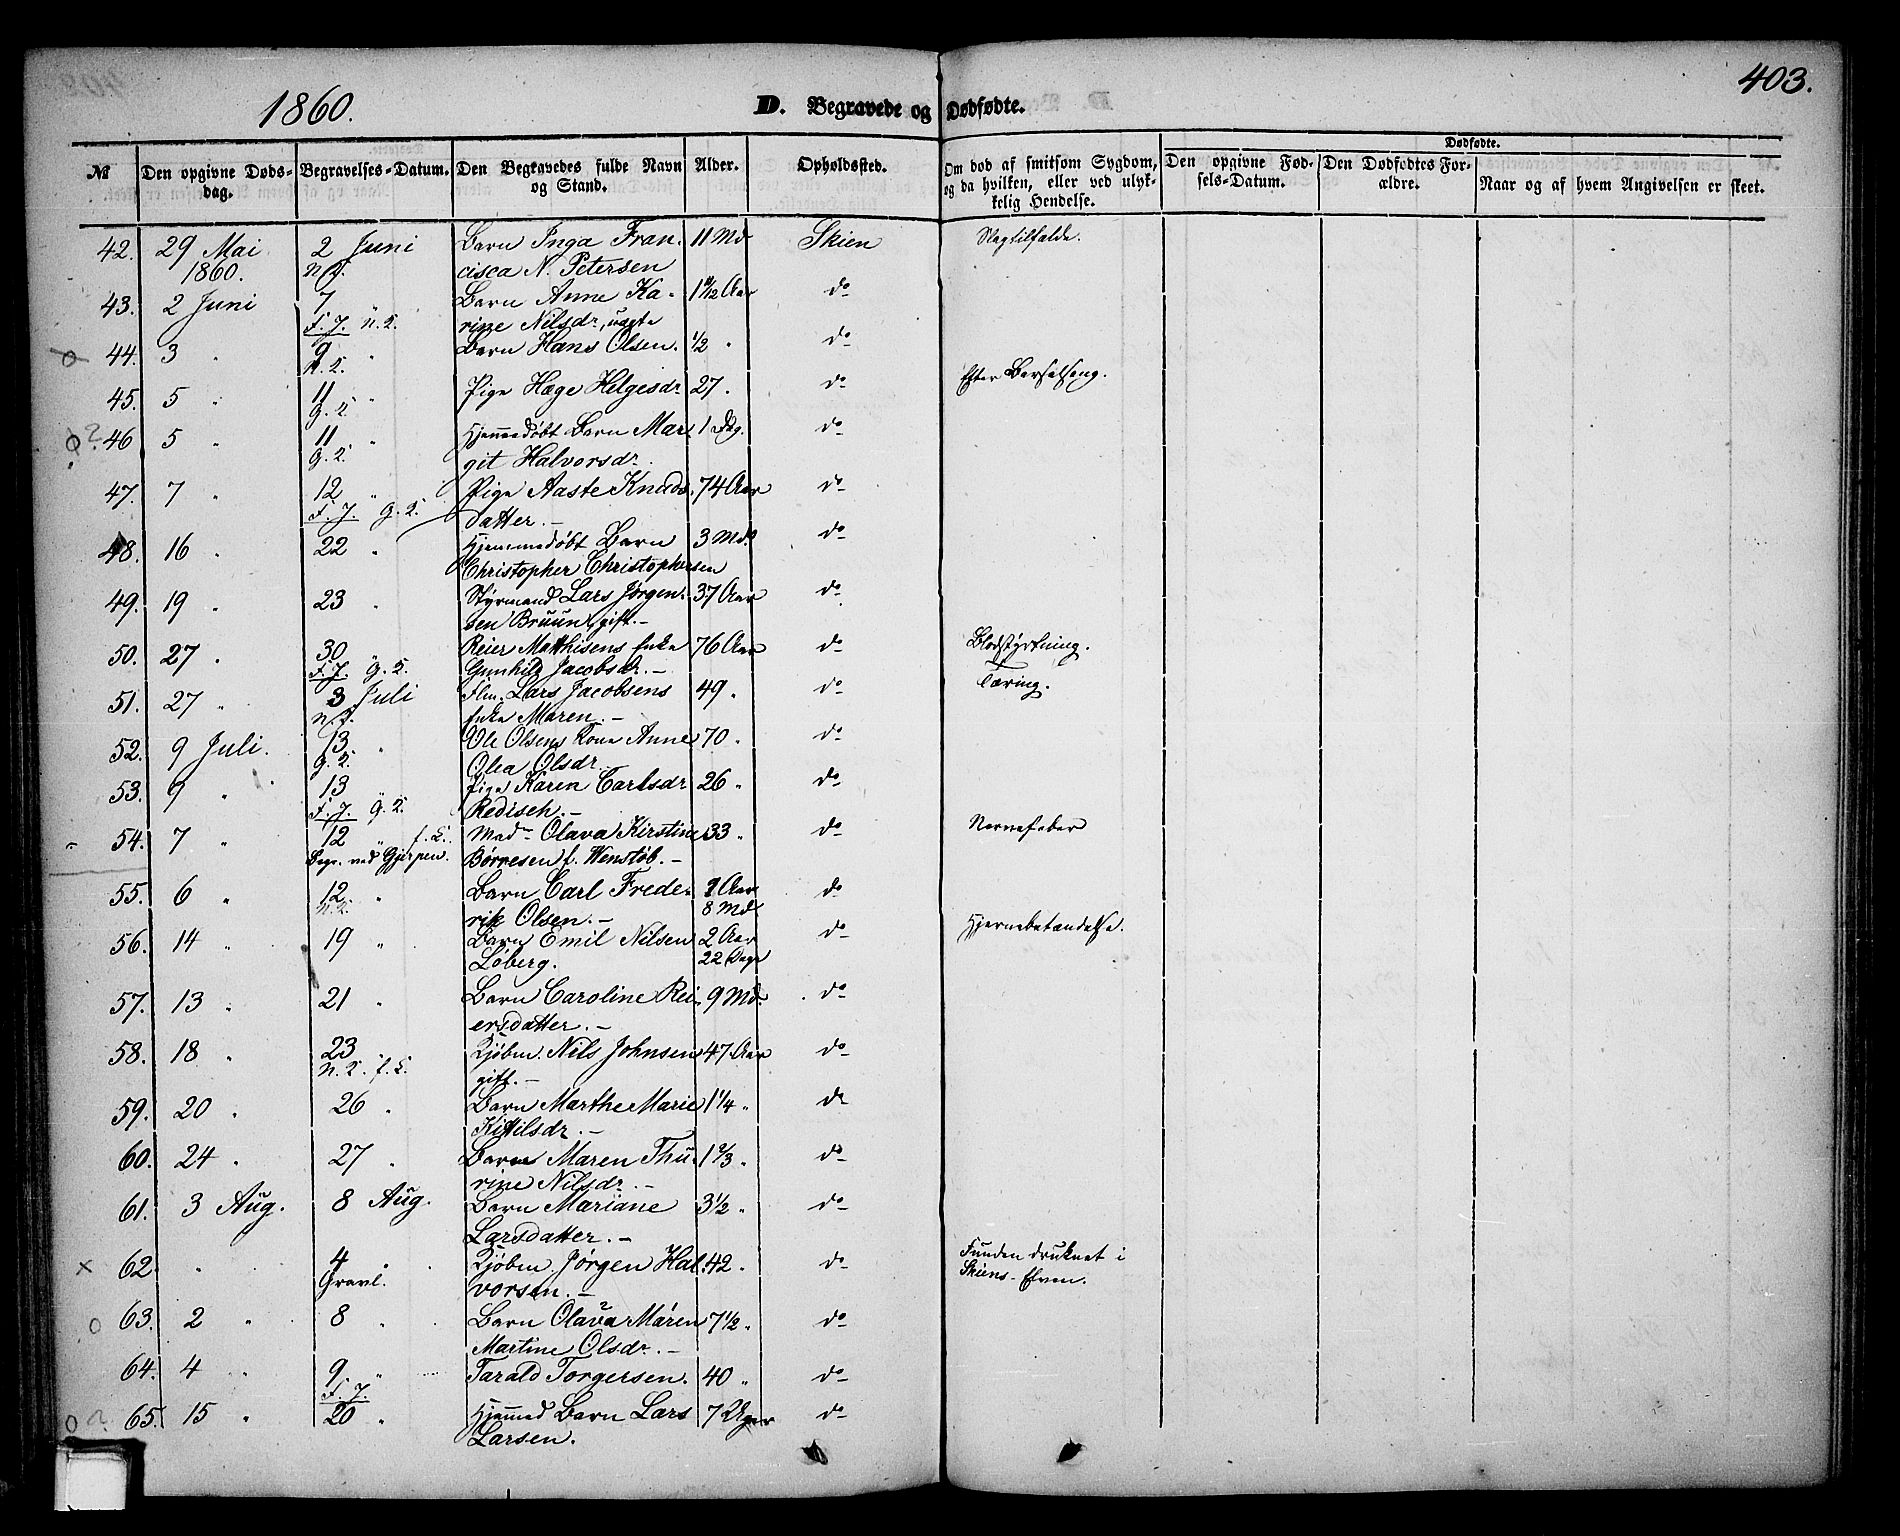 403.
1860.
D. Begravede og Dødfødte.
Dødfødte.
№ Den opgivne Døds-dag. Begravelses-Datum. Den Begravedes fulde Navn og Stand. Alder. Opholdssted. Om død af smitsom Sygdom, og da hvilken, eller ved ulyk-kelig Hendelse. Den opgivne Fød-sels-Datum. Den Dødfødtes For-ældre. Naar og af hvem Angivelsen er skeet.
42. 29 Mai 2 Juni Barn Inga Fran- 11 Md Skien Slagtilfælde.
1860. cisca N. Petersen
43. 2 Juni 7 " Barn Anne Ka- 1 Aar do
F. J. rine Nilsdr, uægte
44. 3 " 9 " Barn Hans Olsen. 1/2 " do
45. 5 " 11 " Pige Hæge Helgesdr 27. do Efter Barselseng.
46 5 " 11 " Hjemmedøbt Barn Mar- 1 Dag. do
git Halvorsdr.
47. 7 " 12 " Pige Aaste Knuds- 74 Aar do
F. J. datter.-
48. 16 " 22 " Hjemmedøbt Barn 3 Md. do
Christopher Christophersen
49. 19 " 23 " Styrmand Lars Jørgen- 37 Aar do
sen Bruun, gift.-
50. 27 " 30 " Reier Mathisens Enke 76 Aar do Blodstyrtning.
F. J. Gunhild Jacobsdr.-
51. 27 " 3 Juli Lars Jacobsens 49 " do Tæring.
Enke Maren.-
52. 9 Juli. 13. " Ole Olsens Kone Anne 70 " do
Olea Olsdr.
53. 9 " 13 " Pige Karen Carlsdr 26 " do
F. J. Redisch.-
54. 7 " 12 " Madm Olava Kirstine 33 " do Nervefeber
Begr. ved Gjerpen. Børresen f. Wenstøb.-
55. 6 " 12 " Barn Carl Frede- Aar do
rik Olsen.- 8 Md
56. 14 " 19 " Barn Emil Nilsen 2 Aar do Hjernebetændelse.
Løberg. 22 Dage
57. 13 " 21 " Barn Caroline Rei- 9 Md. do
ersdatter.-
58. 18 " 23 Kjøbm. Nils Johnsen 47 Aar do
gift.-
59. 20 " 26 " Barn Marthe Marie 1 1/4 " do
Kittilsdr.-
60. 24 " 27 " Barn Maren Thu- 1 2/3 " do
rine Nilsdr.-
61. 3 Aug. 8 Aug. Barn Mariane 3 1/2 " do
Larsdatter.-
x 62 " 4 " Kjøbm. Jørgen Hal- 42 " do Funden druknet i
Gravl. vorsen.- Skiens-Elven.
o 63. 2 " 8 " Barn Olava Maren 7 1/2 " do
Martine Olsdr.-
64. 4 " 9 " Tarald Torgersen. 40 " do
F. J.
o ? 65. 15 " 20 " Hjemmed Barn Lars 7 Uger do
Larsen.